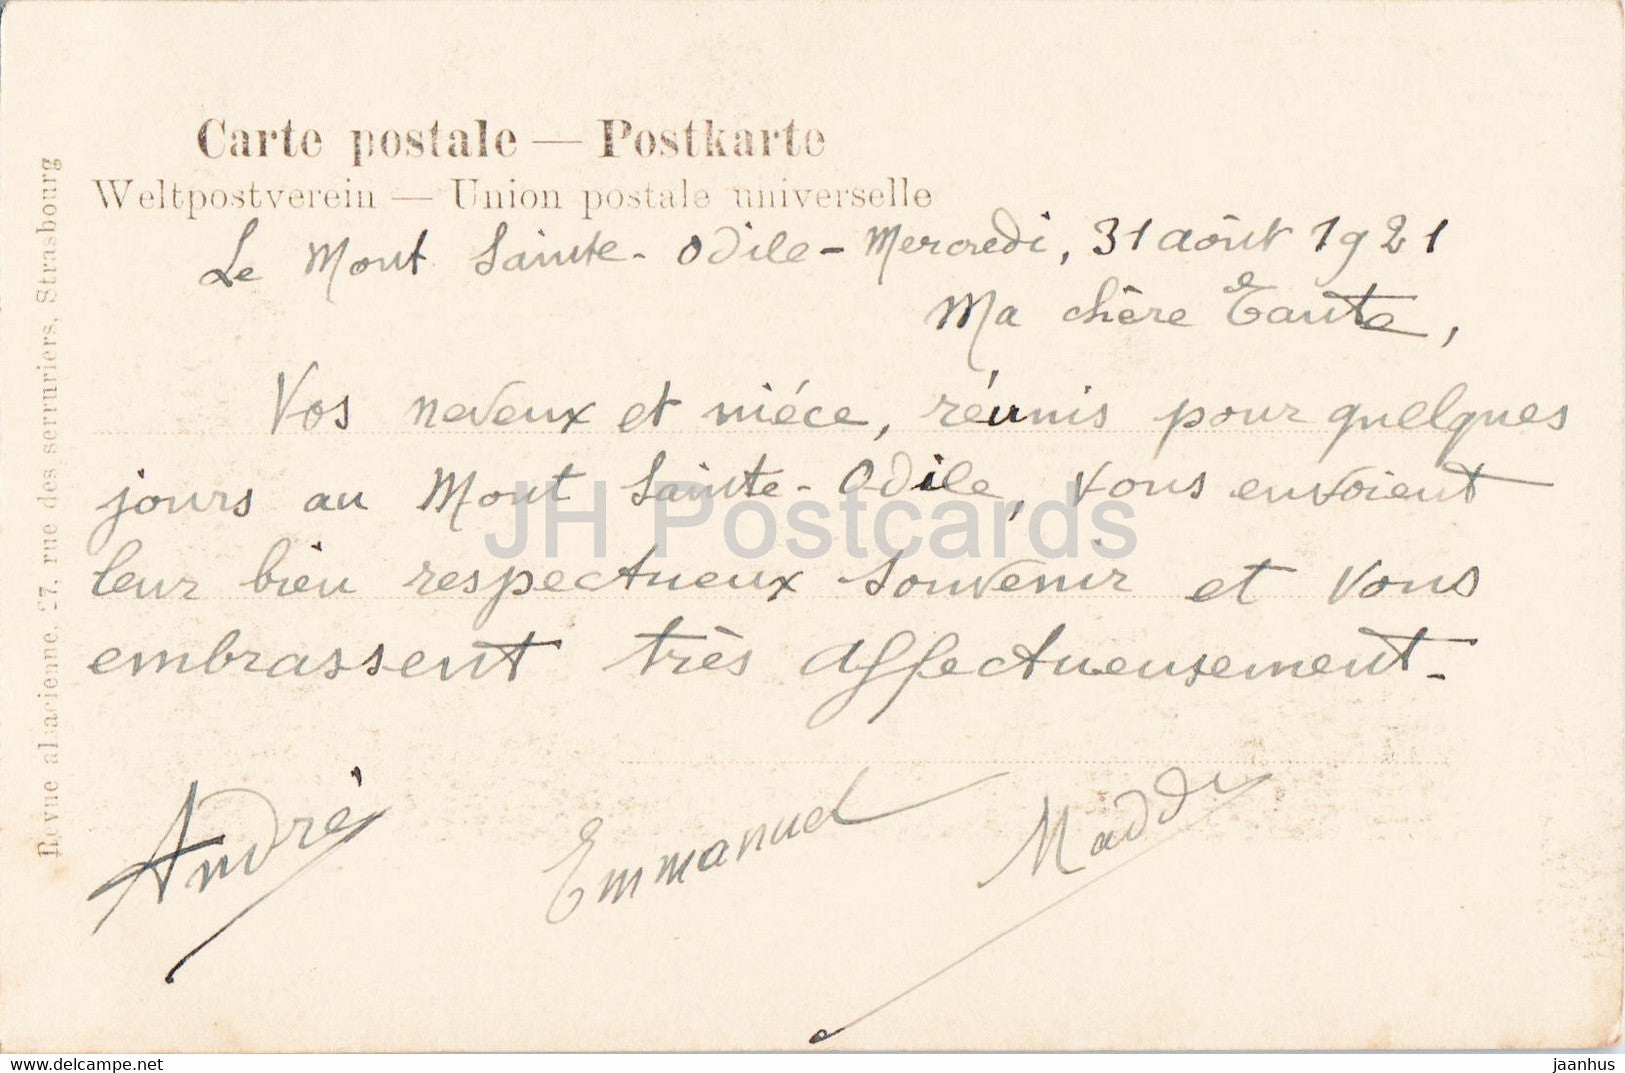 Carte postale — Postkarte
Weltpostverein — Union postale universelle
Le Mont Sainte-Odile - Mercredi, 31 août 1921
Ma chère Tante,
Vos neveux et niéce, réunis pour quelques
jours au Mont Sainte-Odile, vous envoient
leur bien respectueux souvenir et vous
embrassent très affectueusement.
André
Emmanuel
Maddy
Revue alsacienne, 27, rue des serruriers, Strasbourg
JH Postcards
delcampe.net
jaanhus